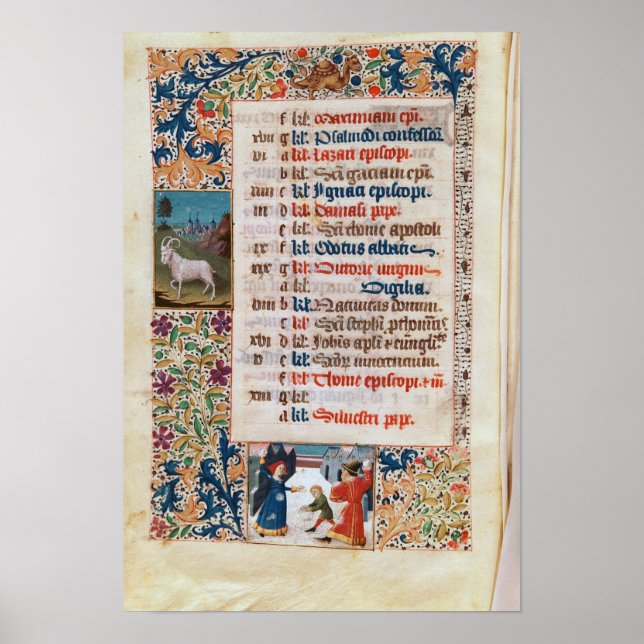 f kl. Maximiani epi.
xvii g kl. Psalmodi confessor
vi a kl. Lazari episcopi.
b kl. Sci graciani epi.
xiiii c kl. Ignaci episcopi.
iii d kl. Damasi pape.
e kl. Sci thome apostoli
xi f kl. Obtus abbatis
xix g kl. Victorie virginis
a kl. Vigilia.
viii b kl. Nativitas domini.
c kl. Sci stephi prthomris
xvi d kl. Johis apli et evvngliste
v e kl. Scor innocentium.
f kl. Thome episcopi et m
xiii g kl.
a kl. Silvestri pape.